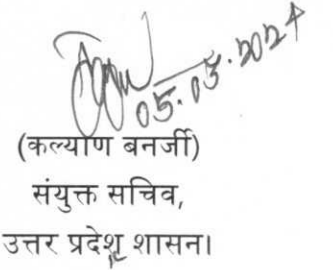 05.03.2024
(कल्याण बनर्जी)
संयुक्त सचिव,
उत्तर प्रदेश शासन।